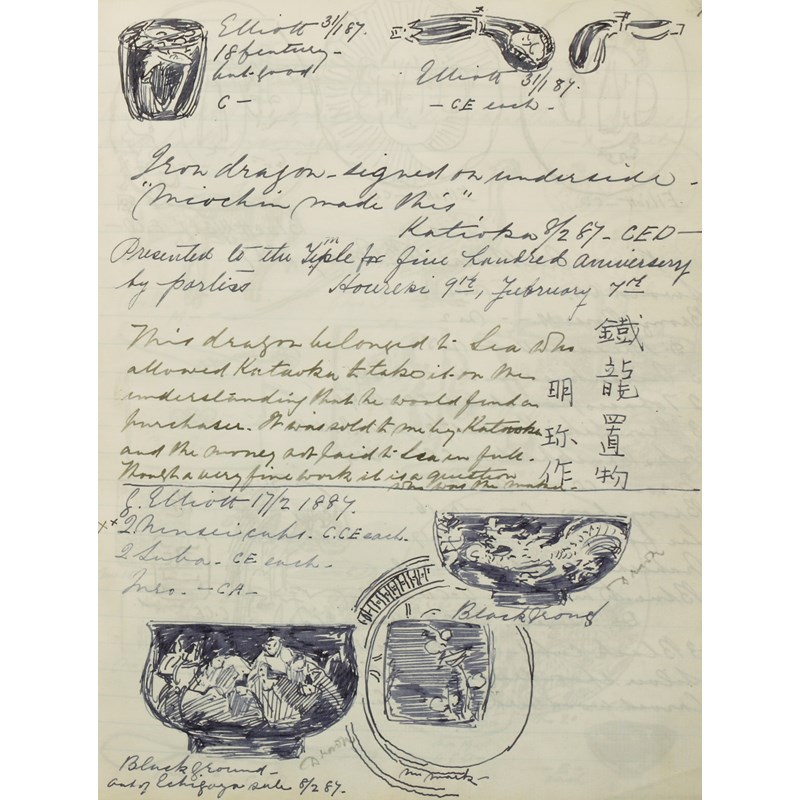 Elliott 31/1 87.
18 Century -
but good
C -
Elliott 31/1 87.
- CE each -
Iron dragon - signed on underside -
"Miochin made this"
Katioka 8/2 87 - CED -
Presented to the Temple for five hundred aniversery
by partiss Houreki 9th, February 7th
This dragon belonged to Sea who
allowed Kataoka to take it on the
understanding that he would find a
purchaser. It was sold to me by Kataoka
and the money not paid to Sea in full.
Though a very fine work it is a question
who was the maker.
鐵龍置物
明珎作
J. Elliott 17/2 1887.
xx 2 Ninsei cups. C.CE each.
2 Suba. CE each.
Inro. - CA -
Black ground
Drawn
Black ground -
out of Echigoya sale 8/2 87.
Drawn
no mark -